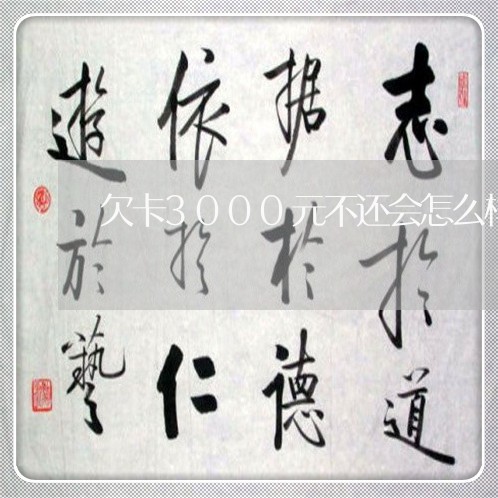 志扵道
据扵德
依扵仁
遊於藝
欠卡3000元不还会怎么